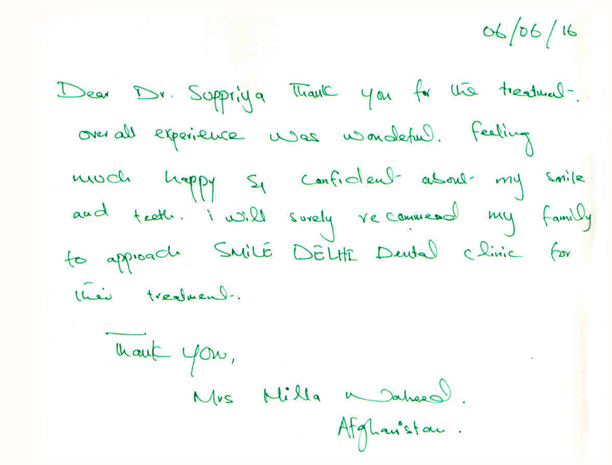 06/06/16
Dear Dr. Suppriya Thank you for the treatment.
over all experience was wondeful. feeling
much happy & confident about my smile
and teeth. i will surely recommend my family
to approach SMILE DELHI Dental clinic for
their treatment.
Thank you,
Mrs Milla Waheed.
Afghanistan.